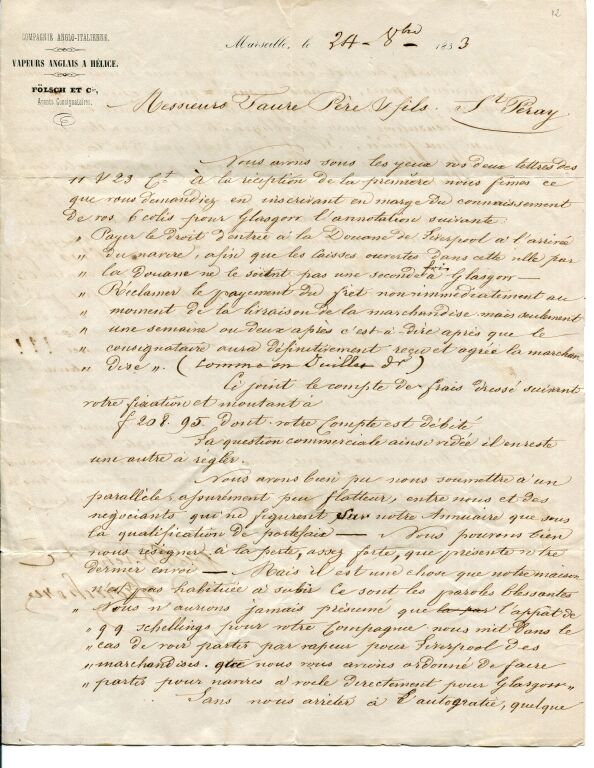 12
COMPAGNIE ANGLO-ITALIENNE.
VAPEURS ANGLAIS A HÉLICE.
FÖLSCH ET Cie,
Agents Consignataires.
Marseille, le 24 - 8bre - 1853
Messieurs Faure Père & fils. St Péray
Nous avons sous les yeux vos deux lettres des
11 & 23 Ct. À la réception de la première nous fîmes ce
que vous demandiez en inscrivant en marge du connaissement
de vos 6 colis pour Glasgow l'annotation suivante:
" Payer le droit d'entrée à la Douane de Liverpool à l'arrivée
" du navire, afin que les caisses ouvertes dans cette ville par
" la douane ne le soient pas une seconde fois à Glasgow —
" Réclamer le payement du fret non immédiatement au
" moment de la livraison de la marchandise mais seulement
" une semaine ou deux après c'est à dire après que le
" consignataire aura définitivement reçu et agréé la marchan
" dise ". (Comme en Juillet dr)
Ci joint le compte de frais dressé suivant
votre fixation et montant à
f 208.95 dont votre Compte est débité
La question commerciale ainsi vidée il en reste
une autre à régler.
Nous avons bien pu nous soumettre à un
parallèle, assurément peu flatteur, entre nous et des
negociants qui ne figurent sur notre Annuaire que sous
la qualification de portefaix — Nous pouvons bien
nous résigner à la perte, assez forte, que présente votre
dernier envoi — Mais il est une chose que notre maison
n'est pas habituée à subir ce sont les paroles blessantes
" Nous n'aurions jamais présumé que l'appât de
" 99 schellings pour votre Compagnie nous mit dans le
" cas de voir partir par vapeur pour Liverpool des
" marchandises que nous vous avions ordonné de faire
" partir pour navires à voile directement pour Glasgow "
Sans nous arrêter à l'autogratie, quelque